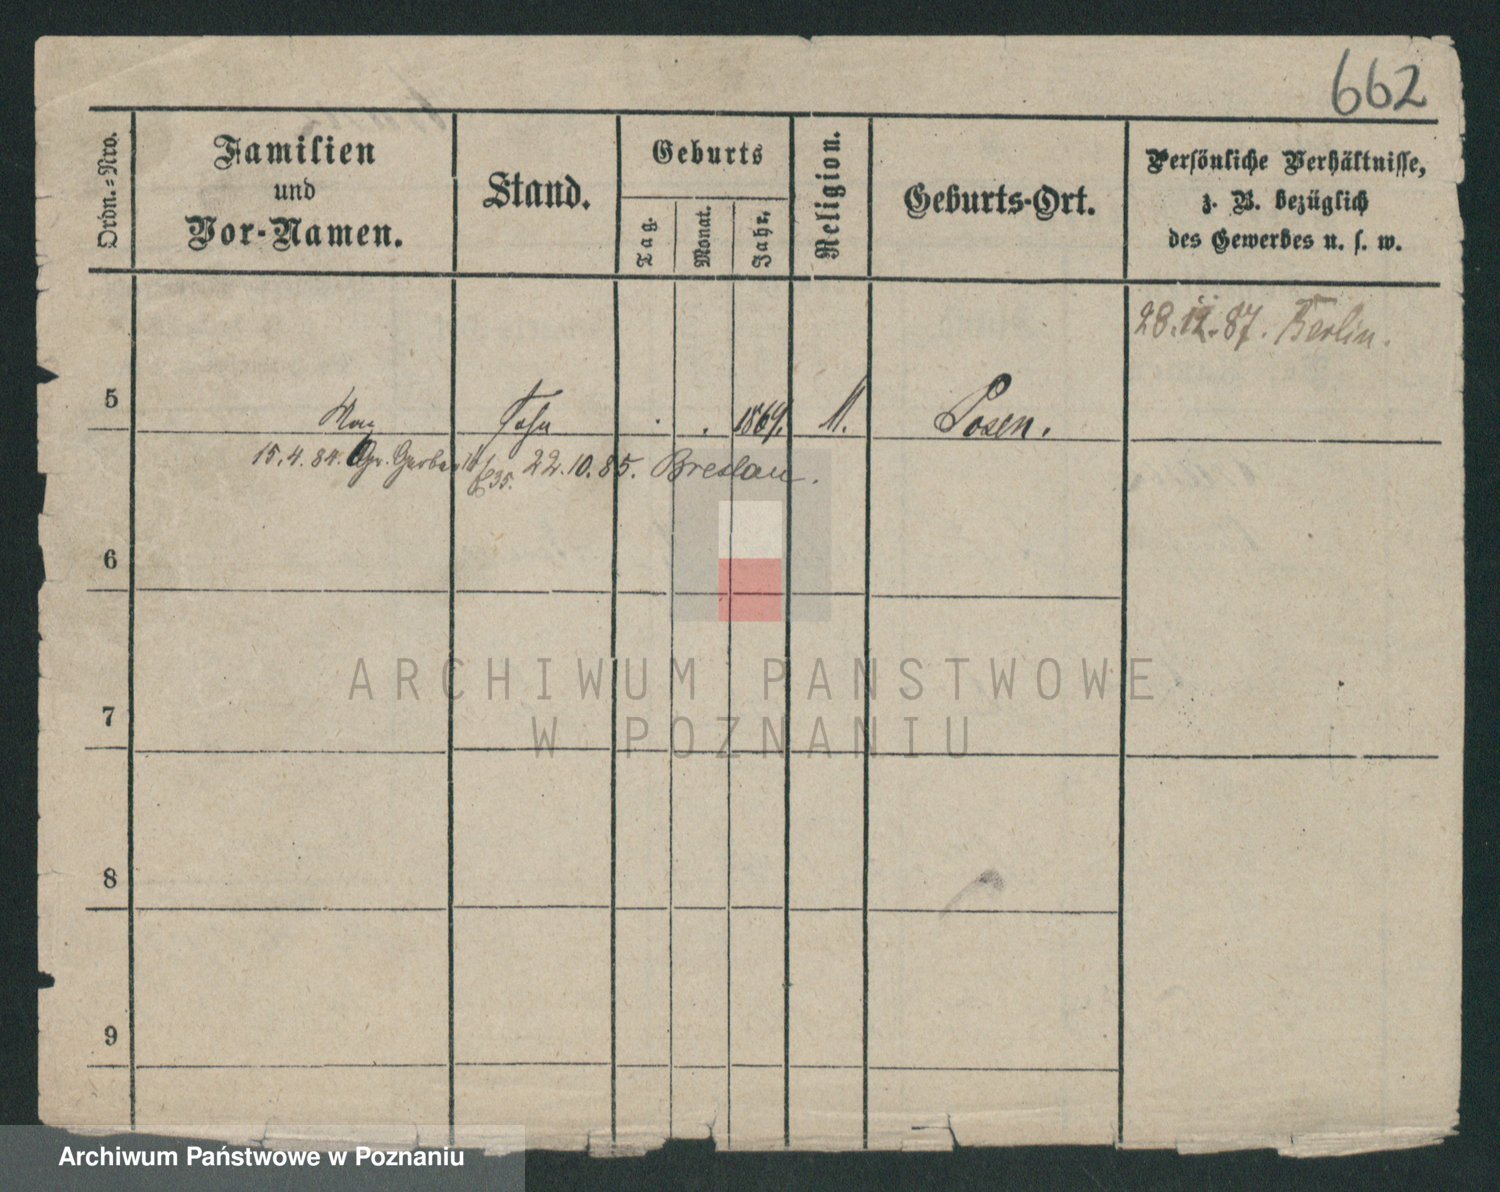 662
Ordn.=Nro.
Familien
und
Vor-Namen.
Stand.
Geburts
Tag.
Monat.
Jahr.
Religion.
Geburts-Ort.
Persönliche Verhältnisse,
z. B. bezüglich
des Gewerbes u. s. w.
28.12.87. Berlin.
5 Max Sohn . . 1869. M. Posen.
15.4.84. Gr. Gerber 22.10.85. Breslau.
6
7
8
9
ARCHIWUM PAŃSTWOWE
W POZNANIU
Archiwum Państwowe w Poznaniu